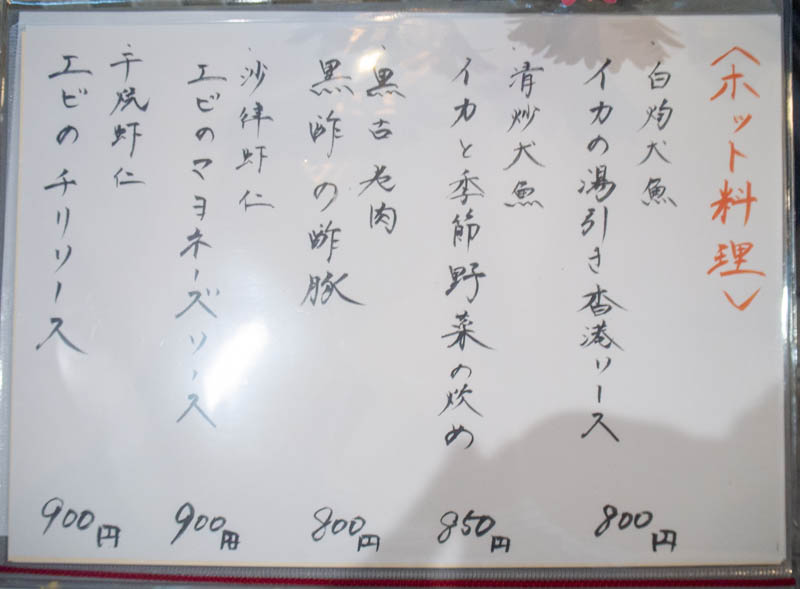 〈ホット料理〉
・白灼犬魚
イカの湯引き香港ソース
800円
・清炒犬魚
イカと季節野菜の炊め
850円
・黒古老肉
黒酢の酢豚
800円
・沙律虾仁
エビのマヨネーズソース
900円
・干烧虾仁
エビのチリソース
900円